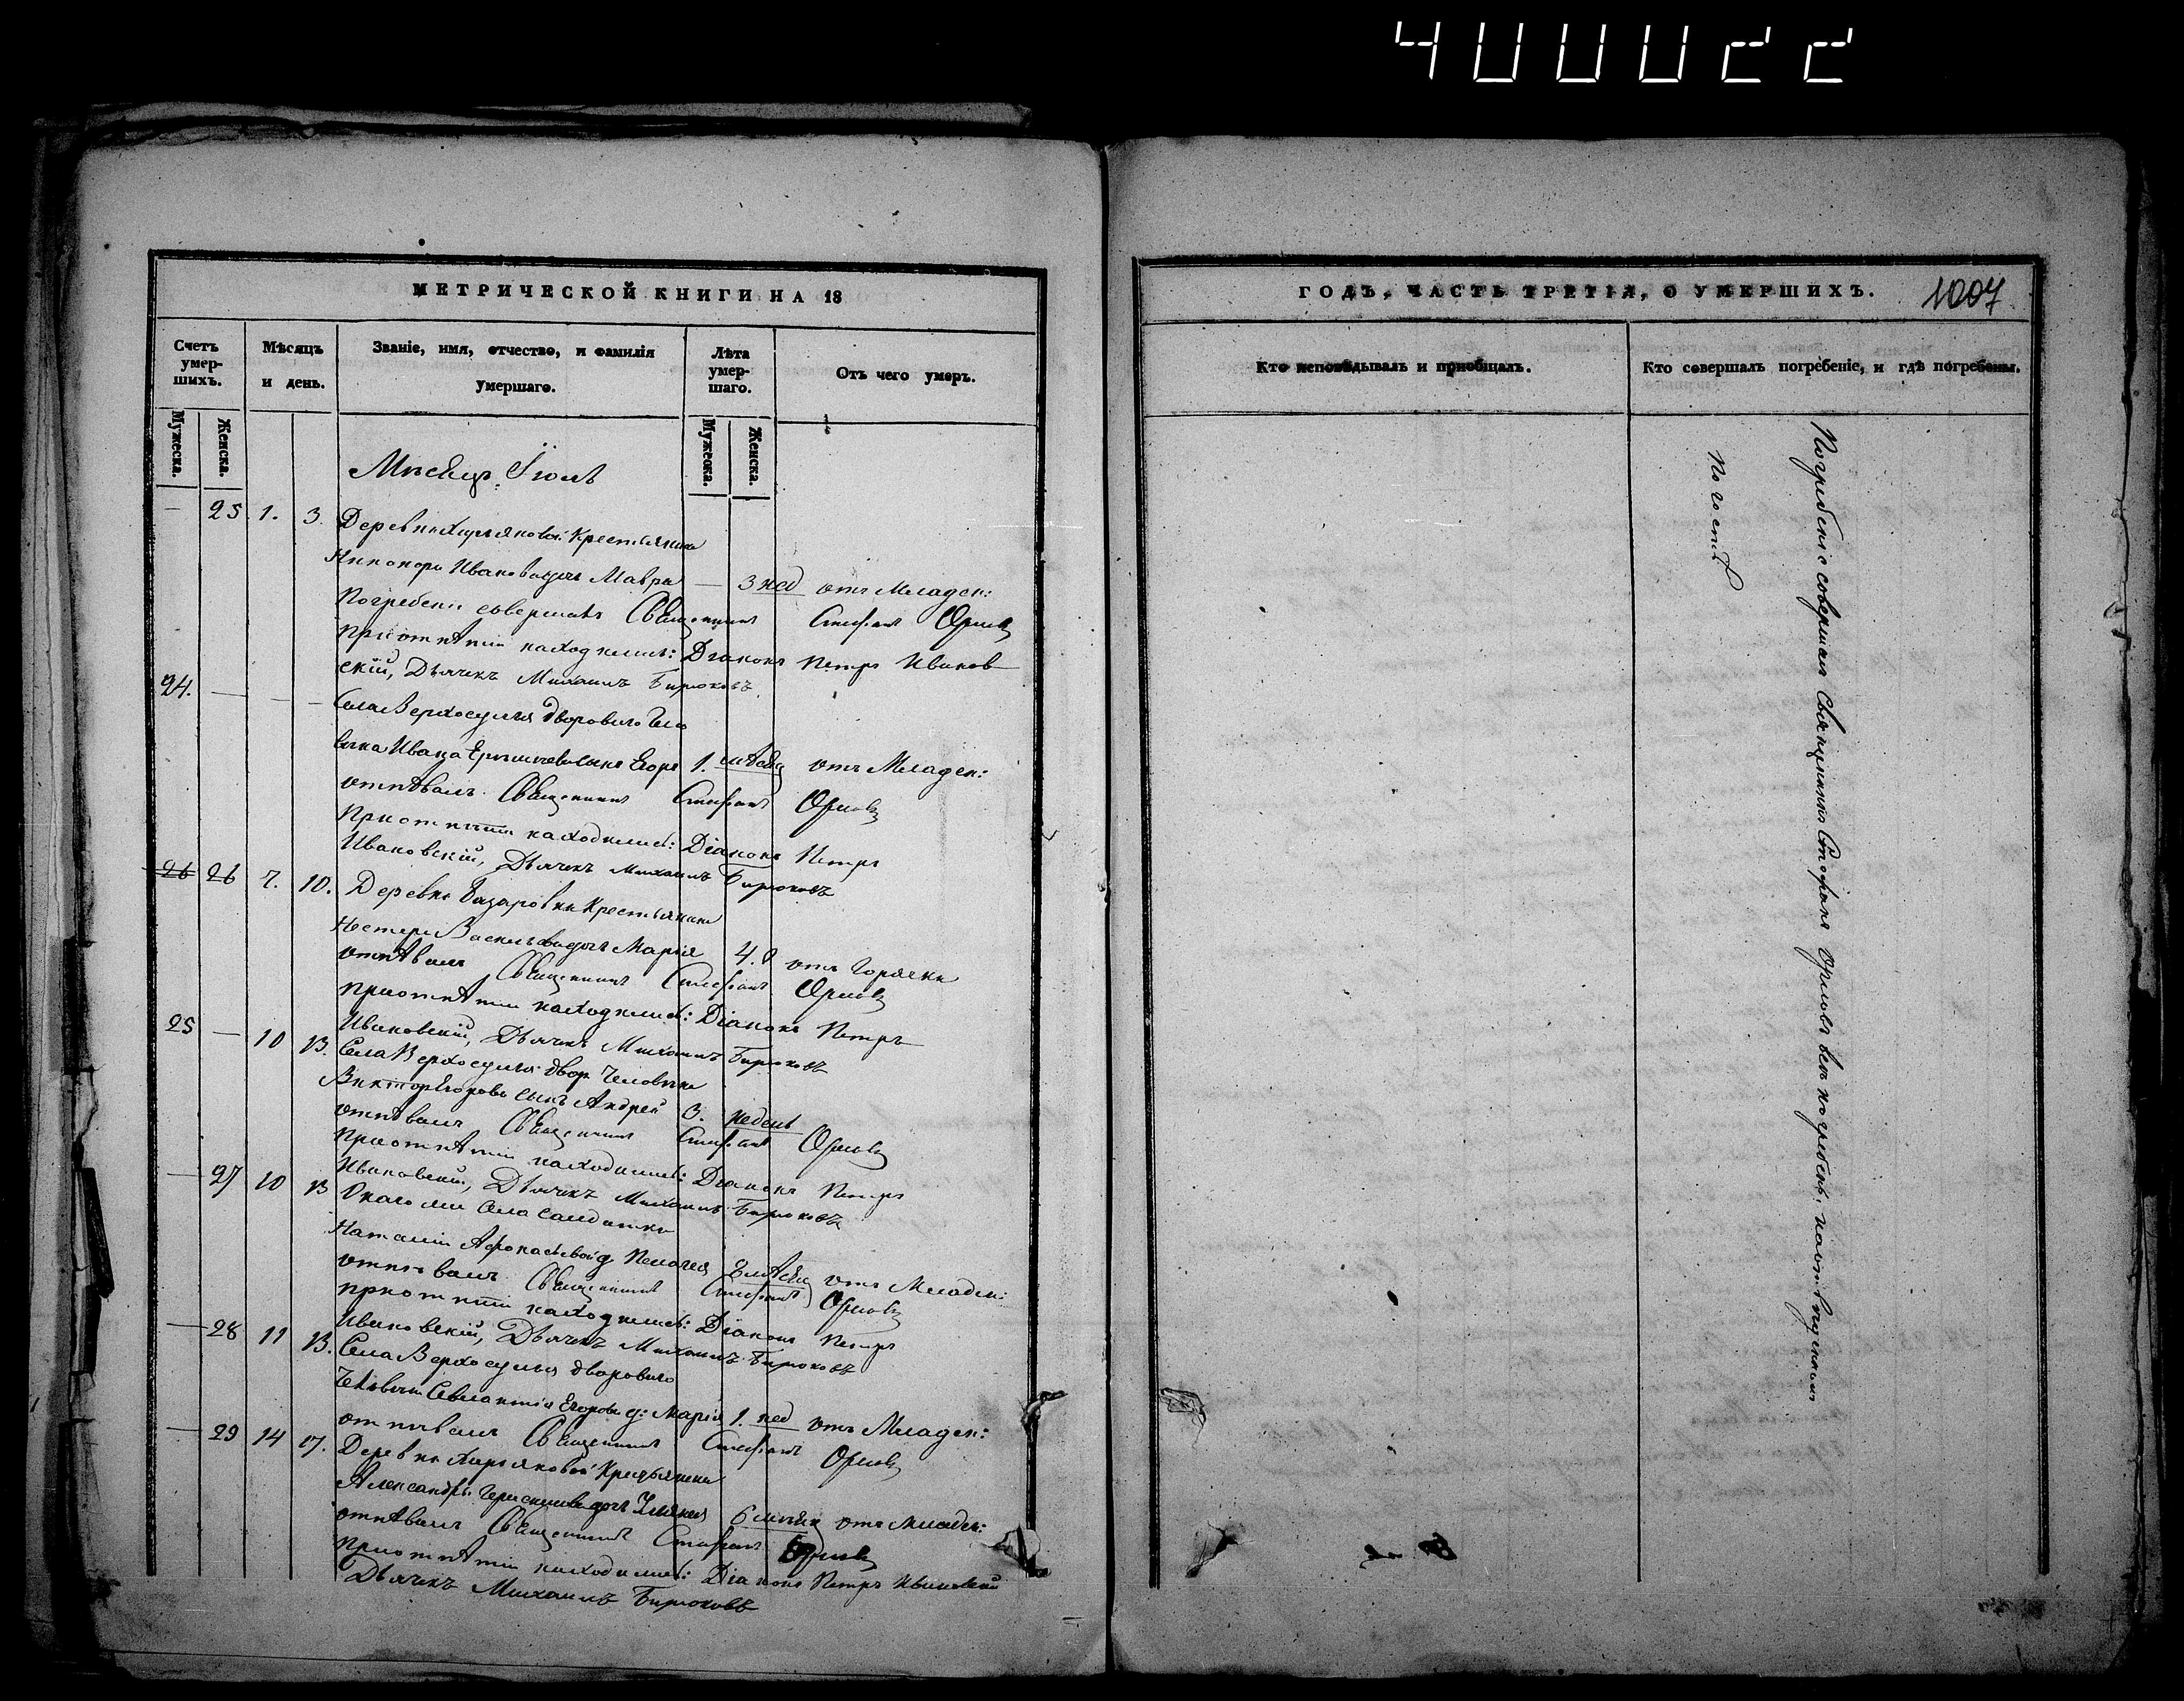 400022
МЕТРИЧЕСКОЙ КНИГИ НА 18
Счетъ умер-шихъ.
Мѣсяцъ и день.
Званіе, имя, отчество, и фамилія умершаго.
Лѣта умер-шаго.
Отъ чего умеръ.
Мужеска.
Женска.
Мужеска.
Женска.
Мѣсяцъ Іюль
— 25 1. 3. Деревни Крестьянина
Никонора Иванова дочь Мавра — 3 нед отъ Младен:
Погребеніе совершалъ Священникъ Стефанъ Орловъ
при отпѣтіи находились: Діаконъ Петръ Иванов
скій, Дьячекъ Михаилъ Бирюковъ
24. — — — Села Верхосулья дворового Чело
вѣка Ивана сынъ Егоръ 1. мѣсяц отъ Младен:
отпѣвалъ Священникъ Стефанъ Орловъ
При отпѣтіи находились: Діаконъ Петръ
Ивановскій, Дьячекъ Михаилъ Бирюковъ
26 26 7. 10. Деревни Крестьянина
Нестера Васильева дочь Марія 4. отъ Горячки
отпѣвалъ Священникъ Стефанъ Орловъ
при отпѣтіи находились: Діаконъ Петръ
Ивановскій, Дьячекъ Михаилъ Бирюковъ
25 — 10 13. Села Верхосулья двор Человѣка
Виктора Егорова сынъ Андрей 3. недель
отпѣвалъ Священникъ Стефанъ Орловъ
при отпѣтіи находились: Діаконъ Петръ
Ивановскій, Дьячекъ Михаилъ Бирюковъ
— 27 10 13 Онаго ми Села Салдатки
Наталіи д Пелагея отъ Младен:
отпѣвалъ Священникъ Стефанъ Орловъ
при отпѣтіи находились: Діаконъ Петръ
Ивановскій, Дьячекъ Михаилъ Бирюковъ
— 28 11 13. Села Верхосулья дворового
Человѣка Егорова д: Марія 1. нед отъ Младен:
отпѣвалъ Священникъ Стефанъ Орловъ
— 29 14 17. Деревни Крестьянина
Александра дочь 6 отъ Младен:
отпѣвалъ Священникъ Стефанъ Орловъ
при отпѣтіи находились: Діаконъ Петръ Ивановскій
Дьячекъ Михаилъ Бирюковъ
ГОДЪ, ЧАСТЬ ТРЕТІЯ, О УМЕРШИХЪ.
1007
Кто исповѣдывалъ и пріобщалъ.
Кто совершалъ погребеніе, и гдѣ погребены.
Погребеніе совершалъ Священникъ Стефанъ Орловъ